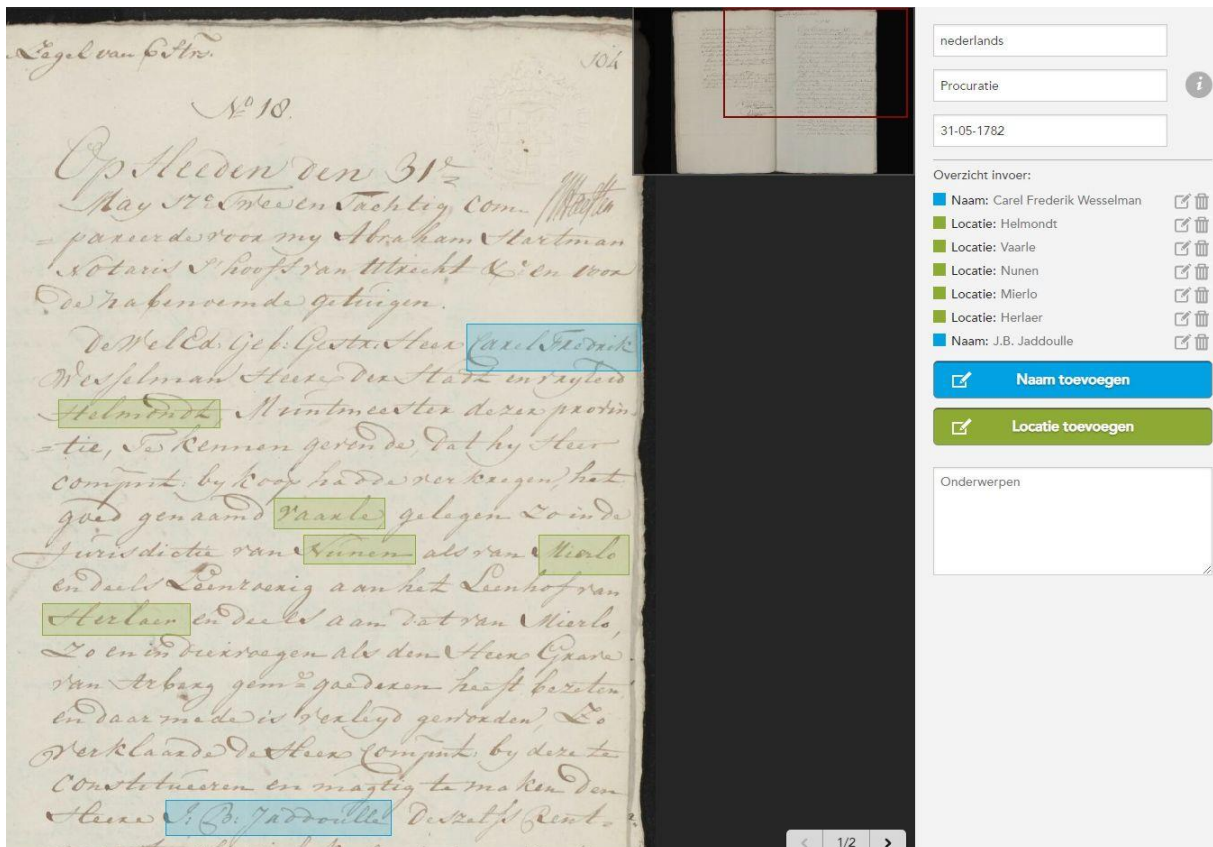 Zegel van 6 Strs.
104
No 18.
Op Heeden den 31e
May 17c Twee en Tachtig, Com-
=pareerde voor my Abraham Hartman
Notaris S'hoofs van Utrecht &c: en voor
de nabenoemde getuigen.
De Wel Ed: Geb: Gestr: Heer Carel Fredrik
Wesselman Heere Der Stadt en
Helmondt, Muntmeester dezer provin-
=tie, Te kennen gevende, Dat hy Heer
compnt: by koop hadde verkregen, het
goed genaamd Vaarle, gelegen Zo in de
Jurisdictie van Nunen als van Mierlo
en deels Leenroerig aan het Leenhof van
Herlaer en deels aan dat van Mierlo,
Zo en in dier voegen als den Heer Grave
van Arberg gem: goederen heeft bezeten,
en daar mede is verleyd geworden, Zo
verklaarde de Heer Compnt: by deze te
Constitueeren en magtig te maken Den
Heere J: B: Jaddoulle Deszelfs Rent-
nederlands
Procuratie
i
31-05-1782
Overzicht invoer:
Naam: Carel Frederik Wesselman
Locatie: Helmondt
Locatie: Vaarle
Locatie: Nunen
Locatie: Mierlo
Locatie: Herlaer
Naam: J.B. Jaddoulle
Naam toevoegen
Locatie toevoegen
Onderwerpen
1/2